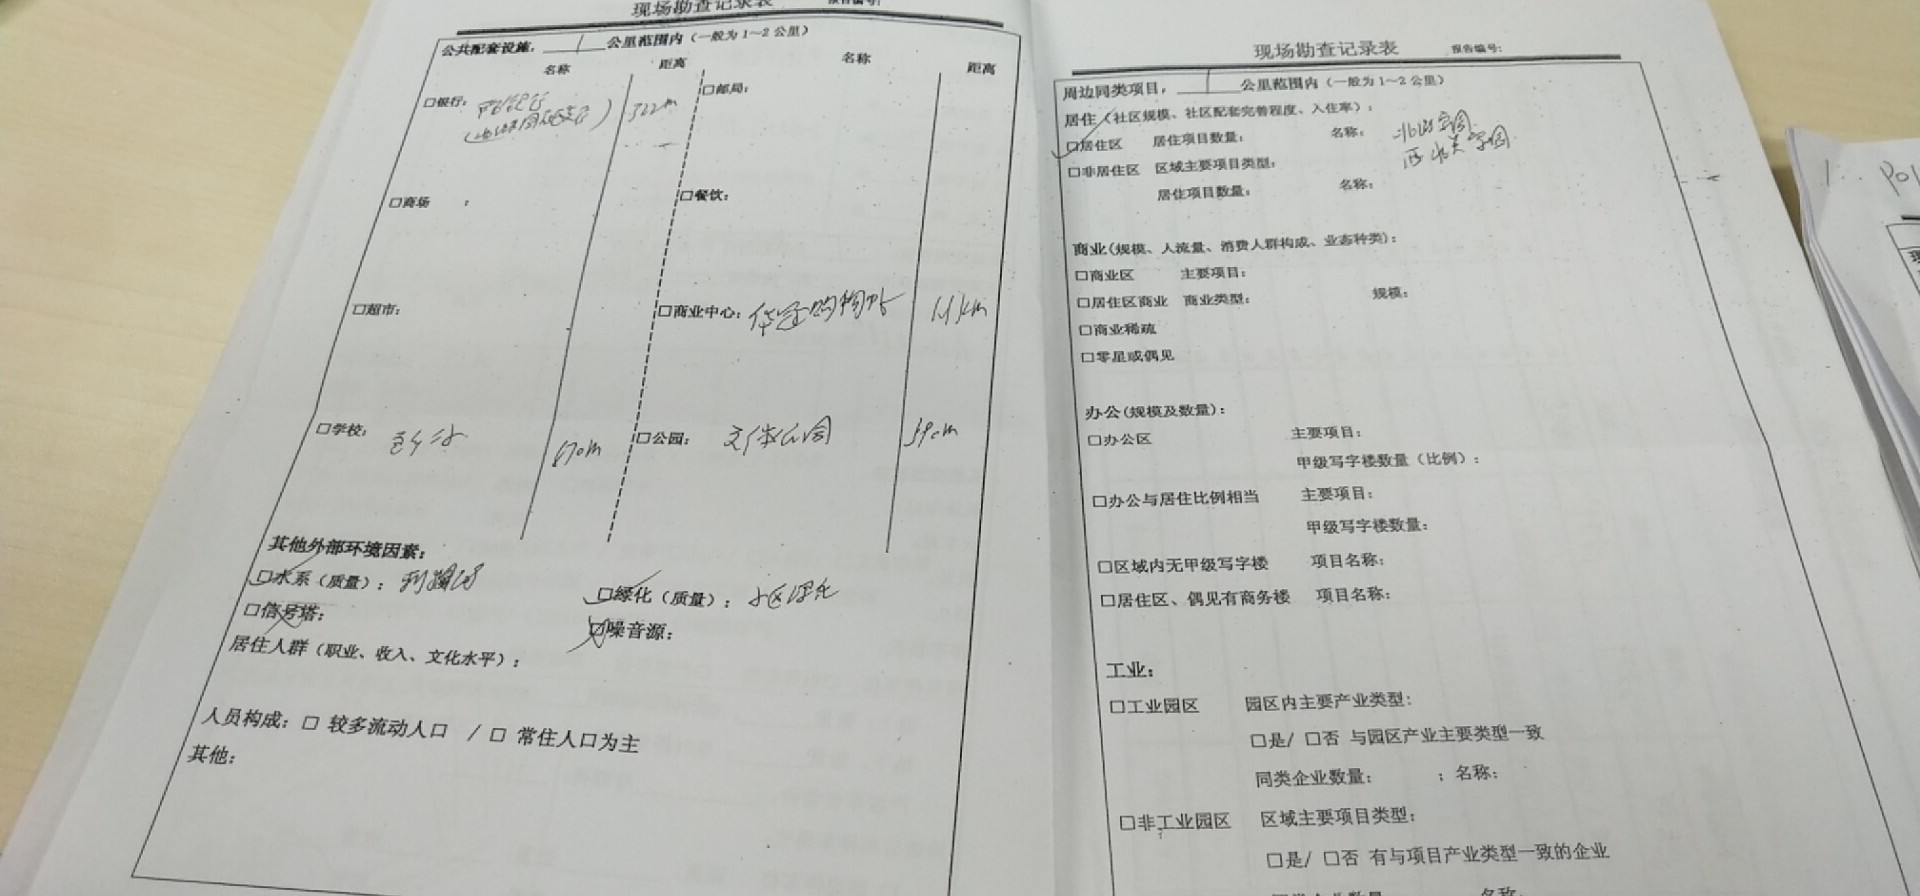 现场勘查记录表 报告编号:
公共配套设施, 1 公里范围内 (一般为1~2公里)
名称 距离 名称 距离
□银行: 322m □邮局:
□商场 : □餐饮:
□超市: □商业中心: 华冠购物 1.1km
□学校: 670m □公园: 文体公园 390m
其他外部环境因素:
□水系 (质量): 刺猬河 □绿化 (质量): 小区绿化
□信号塔: □噪音源:
居住人群 (职业、收入、文化水平):
人员构成: □ 较多流动人口 / □ 常住人口为主
其他:
现场勘查记录表 报告编号:
周边同类项目, 1 公里范围内 (一般为1~2公里)
居住 (社区规模、社区配套完善程度、入住率):
□居住区 居住项目数量: 名称: 北路家园
西北关家园
□非居住区 区域主要项目类型:
居住项目数量: 名称:
商业(规模、人流量、消费人群构成、业态种类):
□商业区 主要项目:
□居住区商业 商业类型: 规模:
□商业稀疏
□零星或偶见
办公(规模及数量):
□办公区 主要项目:
甲级写字楼数量 (比例):
□办公与居住比例相当 主要项目:
甲级写字楼数量:
□区域内无甲级写字楼 项目名称:
□居住区、偶见有商务楼 项目名称:
工业:
□工业园区 园区内主要产业类型:
□是/ □否 与园区产业主要类型一致
同类企业数量: ; 名称:
□非工业园区 区域主要项目类型:
□是/ □否 有与项目产业类型一致的企业